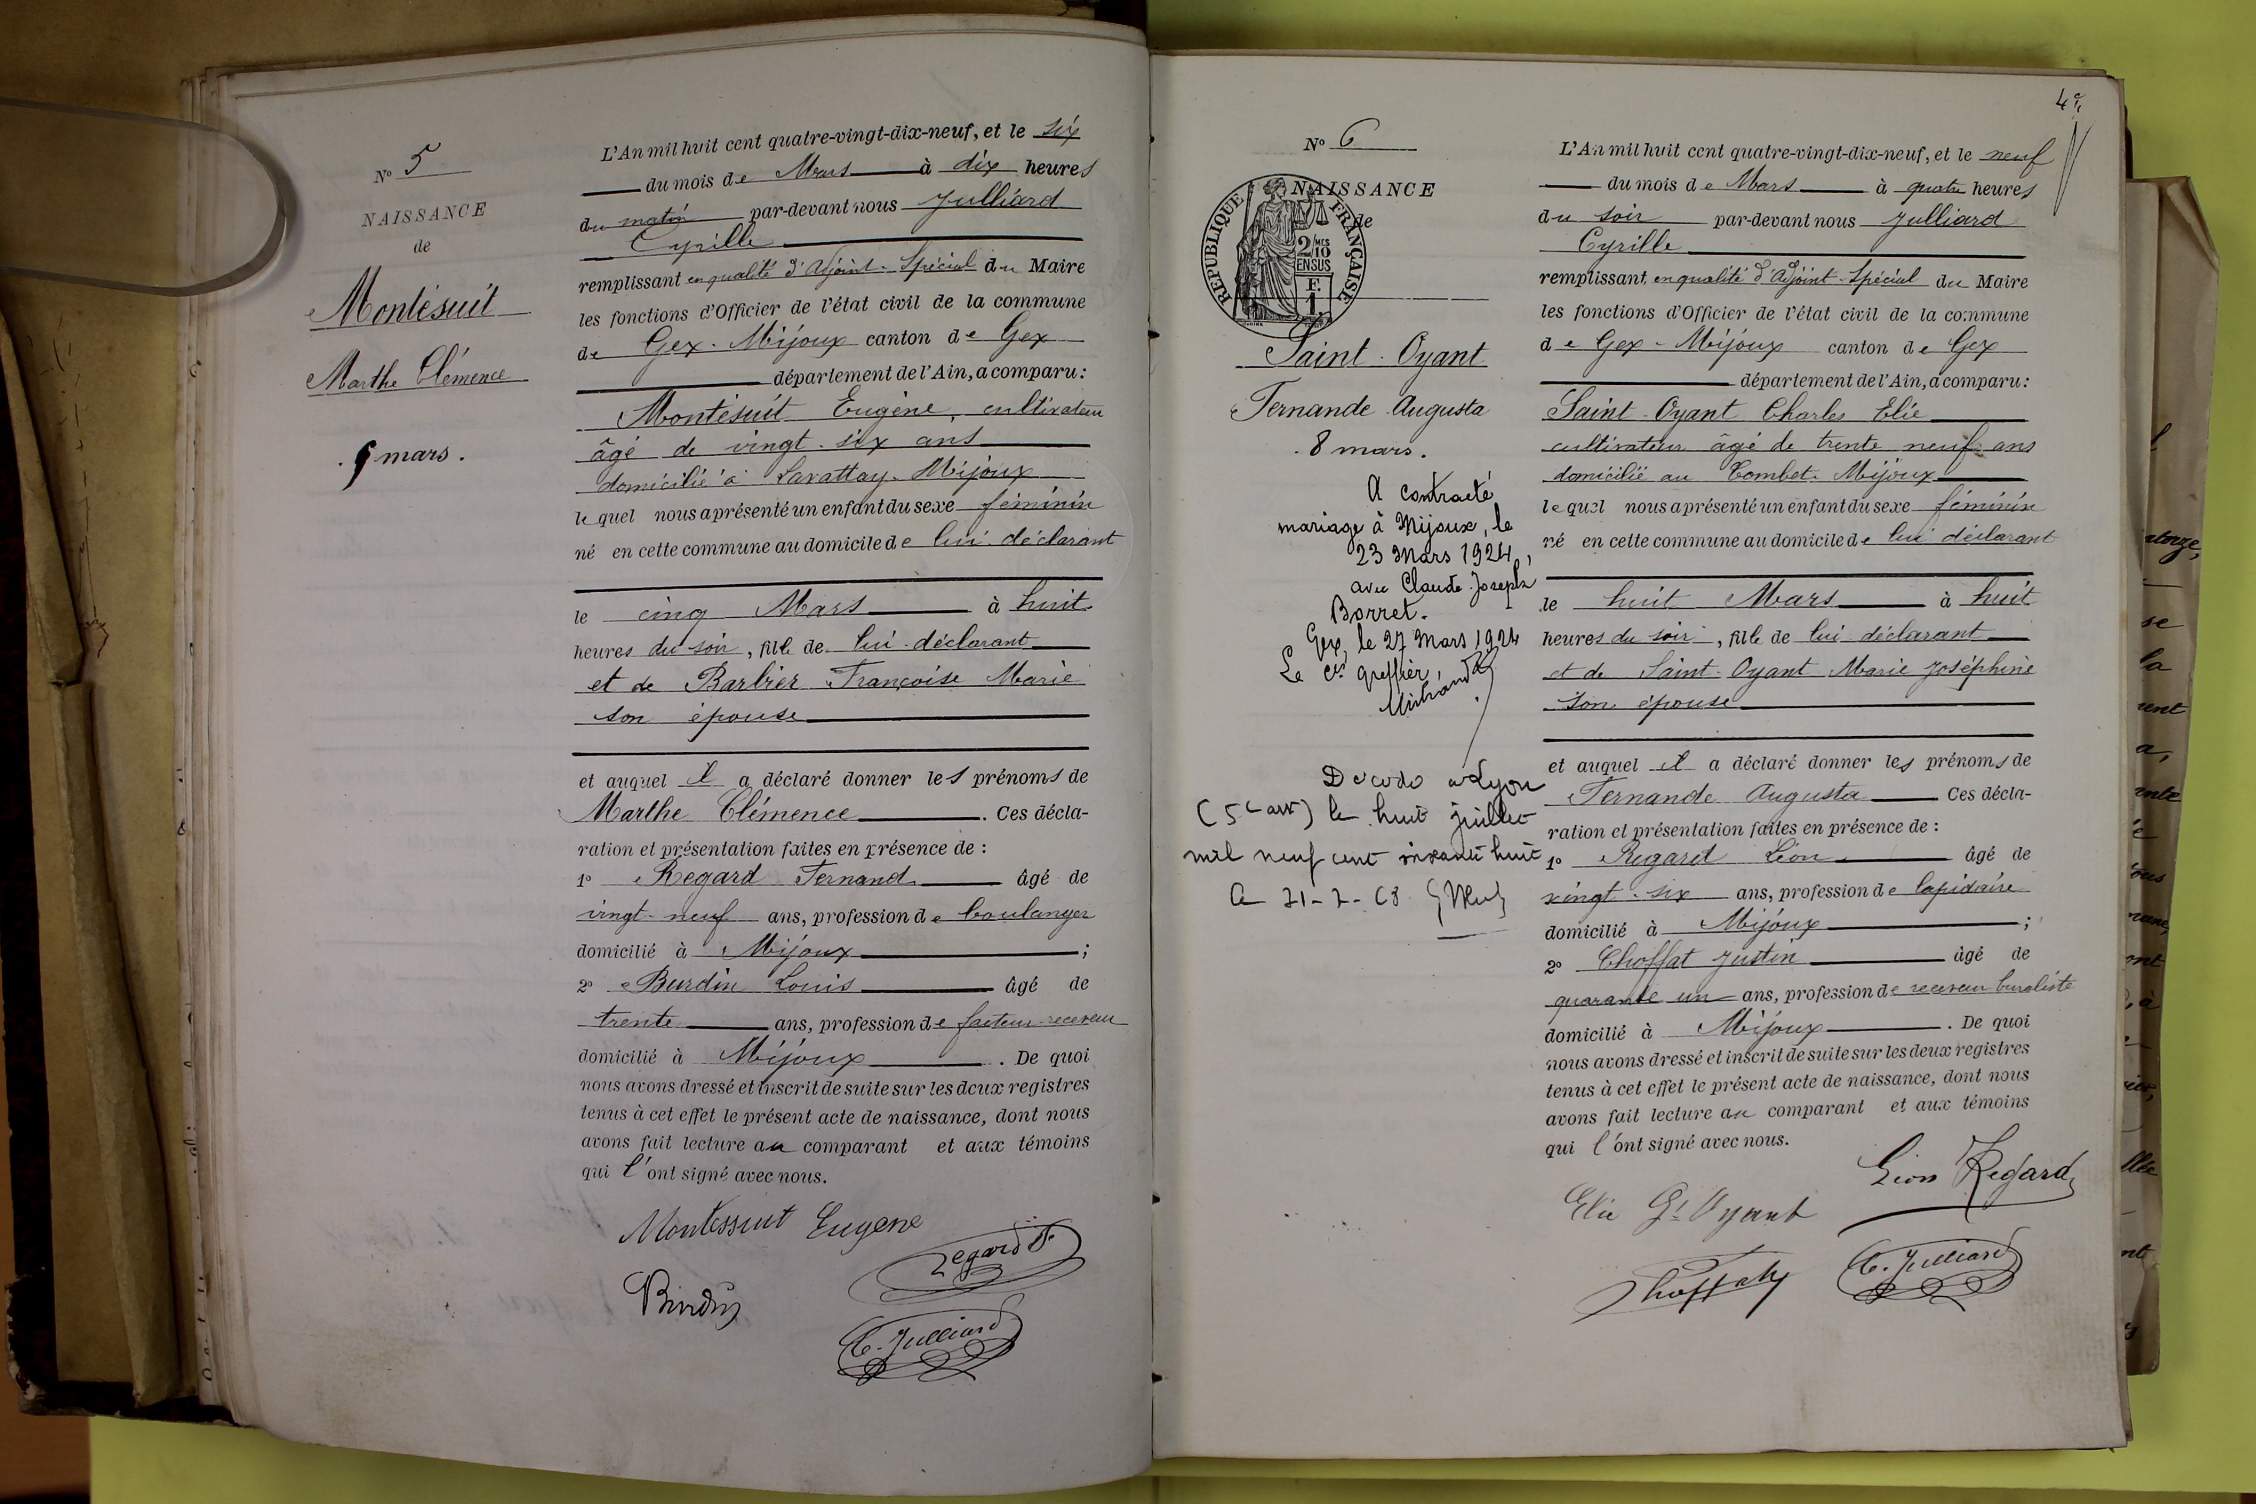 N° 5
NAISSANCE
de
Montésuit
Marthe Clémence
5 mars.
L'An mil huit cent quatre-vingt-dix-neuf, et le six
du mois de Mars à dix heures
du matin par-devant nous Julliard
Cyrille
remplissant en qualité d'Adjoint-Spécial du Maire
les fonctions d'Officier de l'état civil de la commune
de Gex-Mijoux canton de Gex
département de l'Ain, a comparu:
Montésuit Eugène, cultivateur
âgé de vingt-six ans
domicilié à Lavattay-Mijoux
lequel nous a présenté un enfant du sexe féminin
né en cette commune au domicile de lui déclarant
le cinq Mars à huit
heures du soir, fille de lui déclarant
et de Barbier Françoise Marie
son épouse
et auquel il a déclaré donner les prénoms de
Marthe Clémence. Ces décla-
ration et présentation faites en présence de:
1° Regard Fernand âgé de
vingt-neuf ans, profession de boulanger
domicilié à Mijoux;
2° Burdin Louis âgé de
trente ans, profession de facteur-receveur
domicilié à Mijoux. De quoi
nous avons dressé et inscrit de suite sur les deux registres
tenus à cet effet le présent acte de naissance, dont nous
avons fait lecture au comparant et aux témoins
qui l'ont signé avec nous.
Montessuit Eugene
Regard F.
Burdin
C. Julliard
4e
N° 6
NAISSANCE
de
RÉPUBLIQUE FRANÇAISE
2/10 MES
EN SUS
F.
1
Saint-Oyant
Fernande Augusta
8 mars.
A contracté
mariage à Mijoux, le
23 Mars 1924,
avec Claude Joseph
Borret.
Gex, le 27 Mars 1924
Le Cis Greffier,
Décédé à Lyon
(5e arr) le huit juillet
mil neuf cent soixante huit
L'An mil huit cent quatre-vingt-dix-neuf, et le neuf
du mois de Mars à quatre heures
du soir par-devant nous Julliard
Cyrille
remplissant en qualité d'Adjoint-Spécial du Maire
les fonctions d'Officier de l'état civil de la commune
de Gex-Mijoux canton de Gex
département de l'Ain, a comparu:
Saint-Oyant Charles Elie
cultivateur âgé de trente neuf ans
domicilié au Tombet-Mijoux
lequel nous a présenté un enfant du sexe féminin
né en cette commune au domicile de lui déclarant
le huit Mars à huit
heures du soir, fille de lui déclarant
et de Saint-Oyant Marie Joséphine
son épouse
et auquel il a déclaré donner les prénoms de
Fernande Augusta Ces décla-
ration et présentation faites en présence de:
1° Regard Léon âgé de
vingt-six ans, profession de lapidaire
domicilié à Mijoux;
2° Choffat Justin âgé de
quarante un ans, profession de receveur buraliste
domicilié à Mijoux. De quoi
nous avons dressé et inscrit de suite sur les deux registres
tenus à cet effet le présent acte de naissance, dont nous
avons fait lecture au comparant et aux témoins
qui l'ont signé avec nous.
Léon Regard
Elie St Oyant
Choffat
C. Julliard